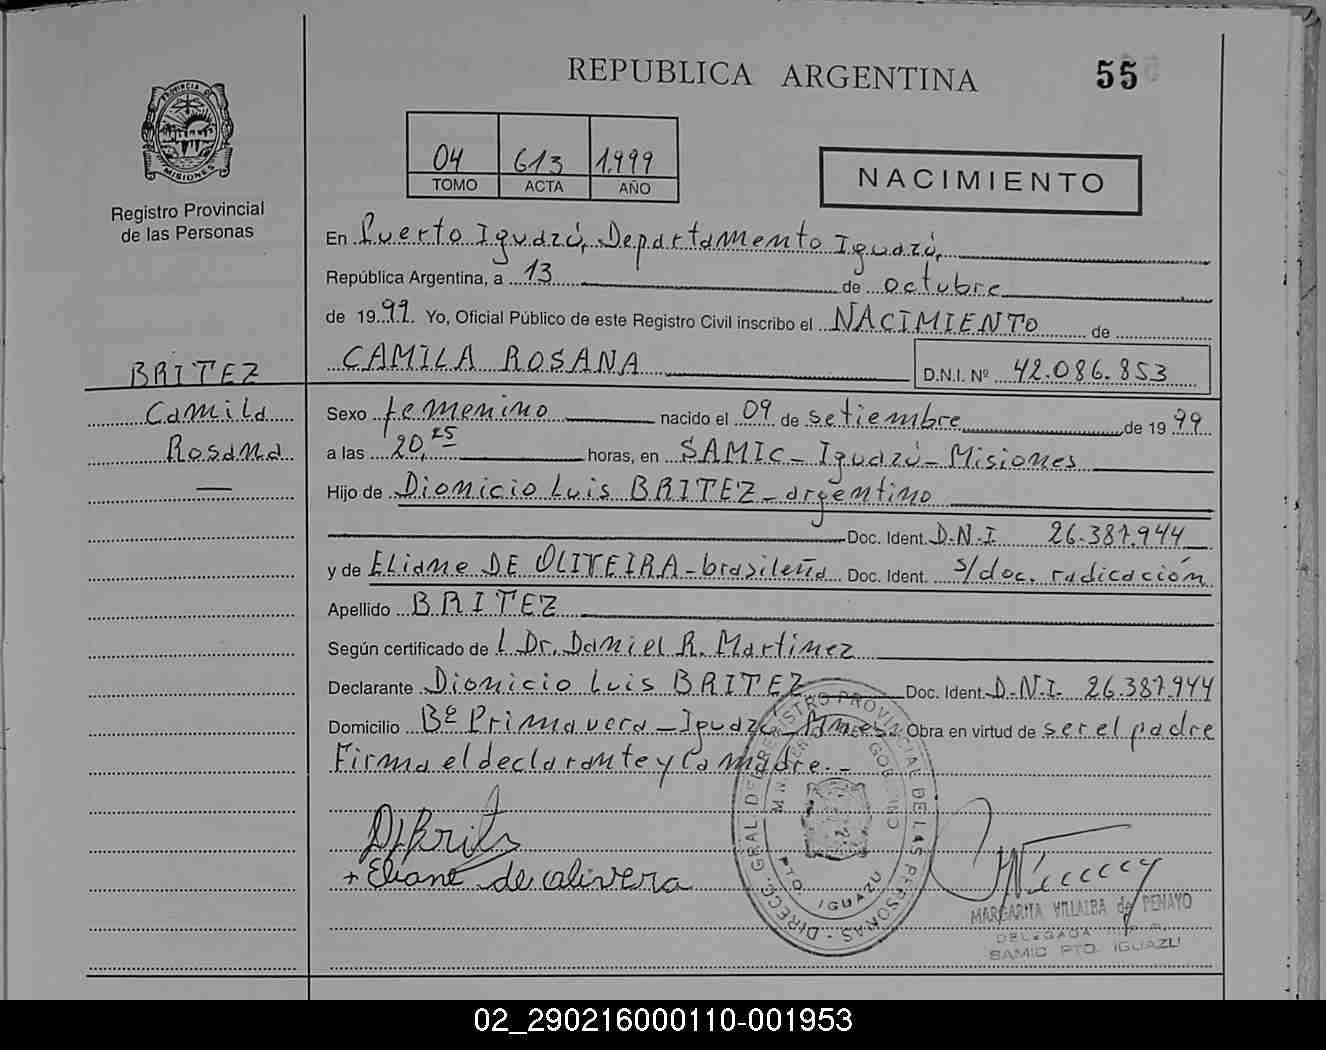 REPUBLICA ARGENTINA
55
PROVINCIA DE
MISIONES
Registro Provincial
de las Personas
04 613 1.999
TOMO ACTA AÑO
NACIMIENTO
En Puerto Iguazú, Departamento Iguazú,
República Argentina, a 13 de octubre
de 1999. Yo, Oficial Público de este Registro Civil inscribo el NACIMIENTO de
BRITEZ
CAMILA ROSANA
D.N.I. Nº 42.086.853
Camila
Sexo femenino nacido el 09 de setiembre de 1999
Rosana
a las 20,25 horas, en SAMIC - Iguazú - Misiones
—
Hijo de Dionicio Luis BRITEZ - argentino
Doc. Ident. D.N.I 26.387.944
y de Eliane DE OLIVEIRA - brasileña Doc. Ident. s/doc. radicación
Apellido BRITEZ
Según certificado de l Dr. Daniel R. Martinez
Declarante Dionicio Luis BRITEZ Doc. Ident. D.N.I. 26.387.944
Domicilio Bº Primavera - Iguazú - Mnes. Obra en virtud de ser el padre
Firma el declarante y la madre. -
DIRECC. GRAL. DEL REGISTRO PROVINCIAL DE LAS PERSONAS
GOBIERNO
PTO. IGUAZU
+ Eliane de olivera
MARGARITA VILLALBA de PENAYO
DELEGADA
SAMIC PTO. IGUAZU
02_290216000110-001953